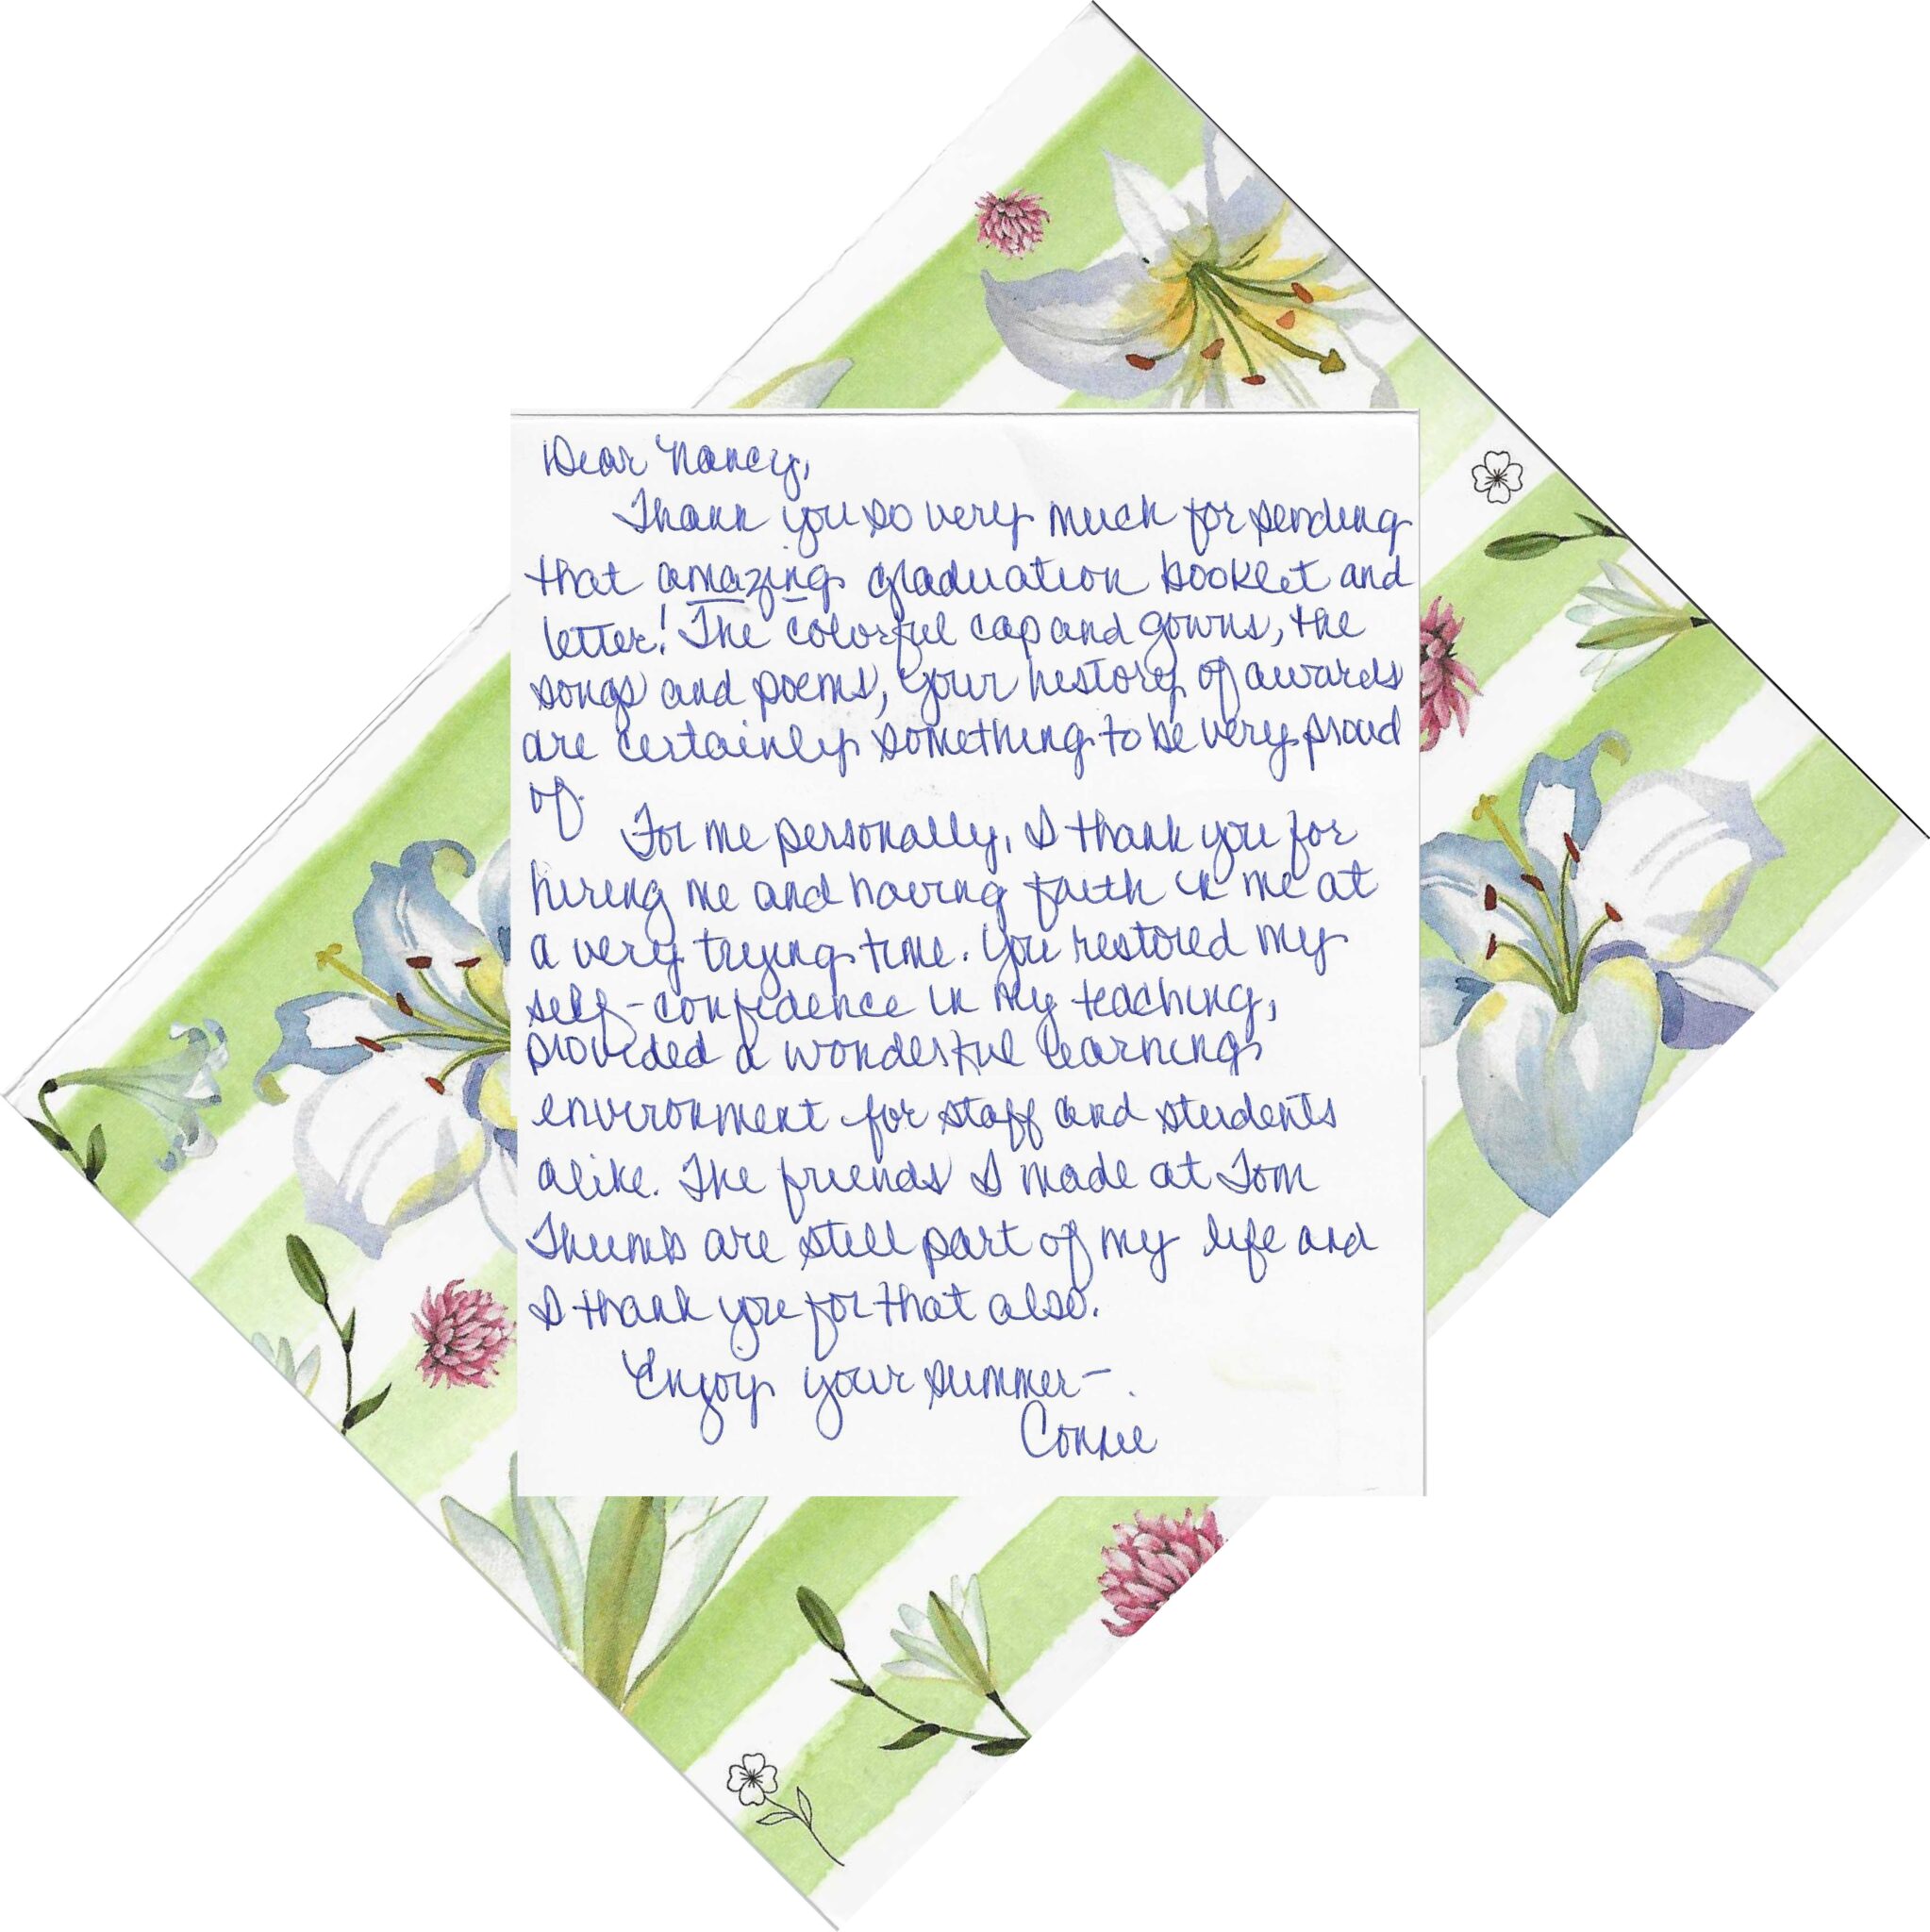 Dear Nancy,
Thank you so very much for sending
that amazing graduation booklet and
letter! The colorful cap and gowns, the
songs and poems, your history of awards
are certainly something to be very proud
of.
For me personally, I thank you for
hiring me and having faith in me at
a very trying time. You restored my
self-confidence in my teaching,
provided a wonderful learning
environment for staff and students
alike. The friends I made at Tom
Thumb are still part of my life and
I thank you for that also.
Enjoy your summer-.
Connie